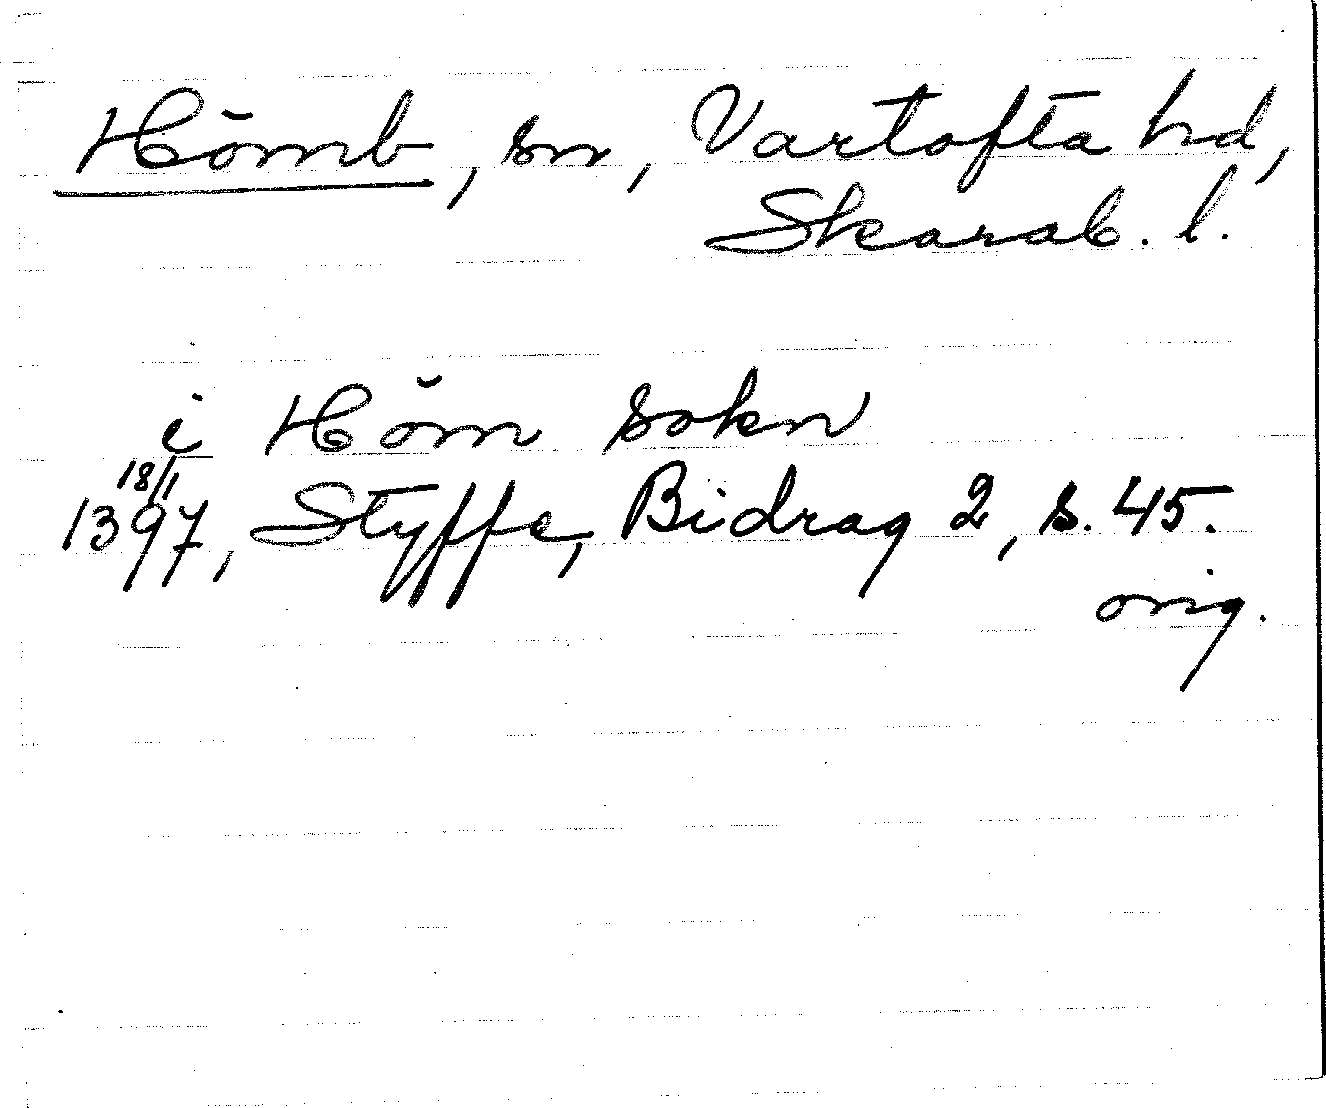 Hömb, sn, Vartofta hd,
Skarab. l.
i Höm sokn
18/1
1397, Styffe, Bidrag 2, s. 45.
orig.